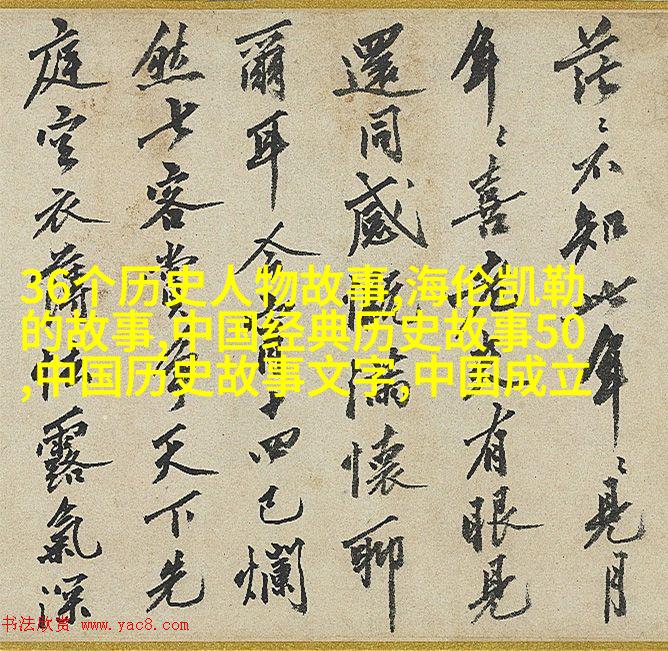 茫〻不知此年〻見月
年〻喜有眼見
還同感慨滿懷聊
爾耳今宵十四已爛
然七客賞爭天下先
庭空衣薄怯露氣深
36个历史人物故事,海伦凯勒
的故事,中国经典历史故事50
,中国历史故事文字,中国成立
书法欣赏 www.yac8.com